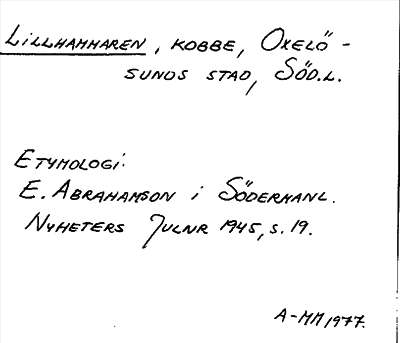 LILLHAMMAREN, KOBBE, OXELÖ-
SUNDS STAD, SÖD.L.
ETYMOLOGI:
E. ABRAHAMSON i SÖDERMANL.
NYHETERS JULNR 1945, S. 19.
A-MM 1977.